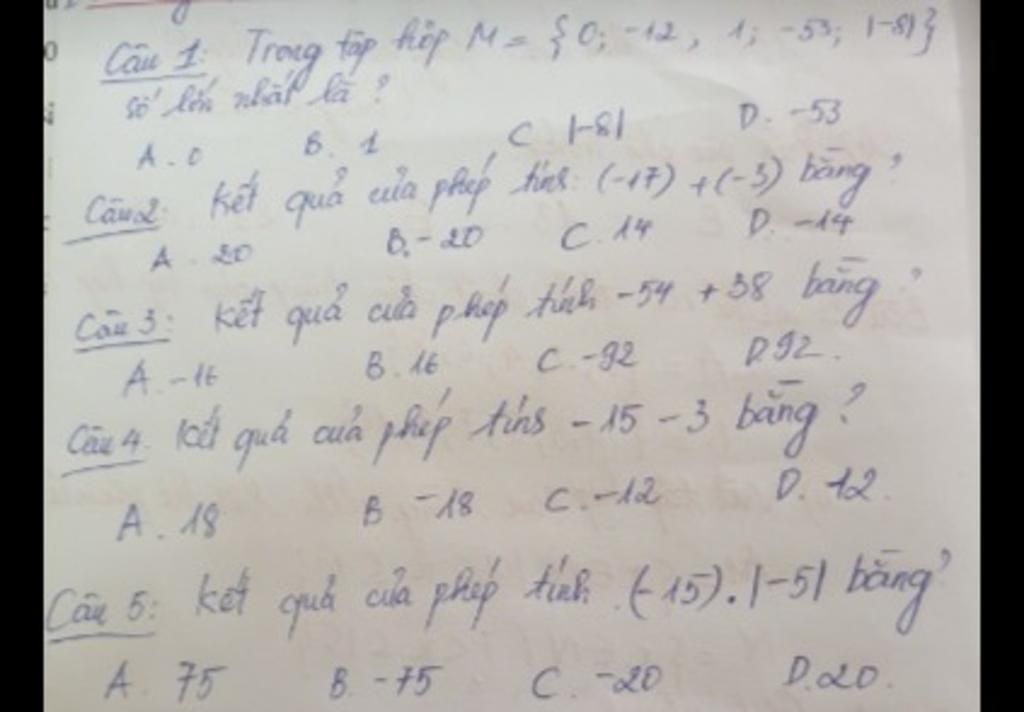 Câu 1: Trong tập hợp M = {0; -12, 1; -53; |-8|}
số lớn nhất là ?
A. 0 B. 1 C. |-8| D. -53
Câu 2: Kết quả của phép tính: (-17) + (-3) bằng?
A. 20 B. -20 C. 14 D. -14
Câu 3: Kết quả của phép tính -54 + 38 bằng?
A. -16 B. 16 C. -92 D. 92.
Câu 4. Kết quả của phép tính -15 - 3 bằng?
A. 18 B -18 C. -12 D. 12.
Câu 5: Kết quả của phép tính (-15). |-5| bằng?
A. 75 B. -75 C. -20 D. 20.